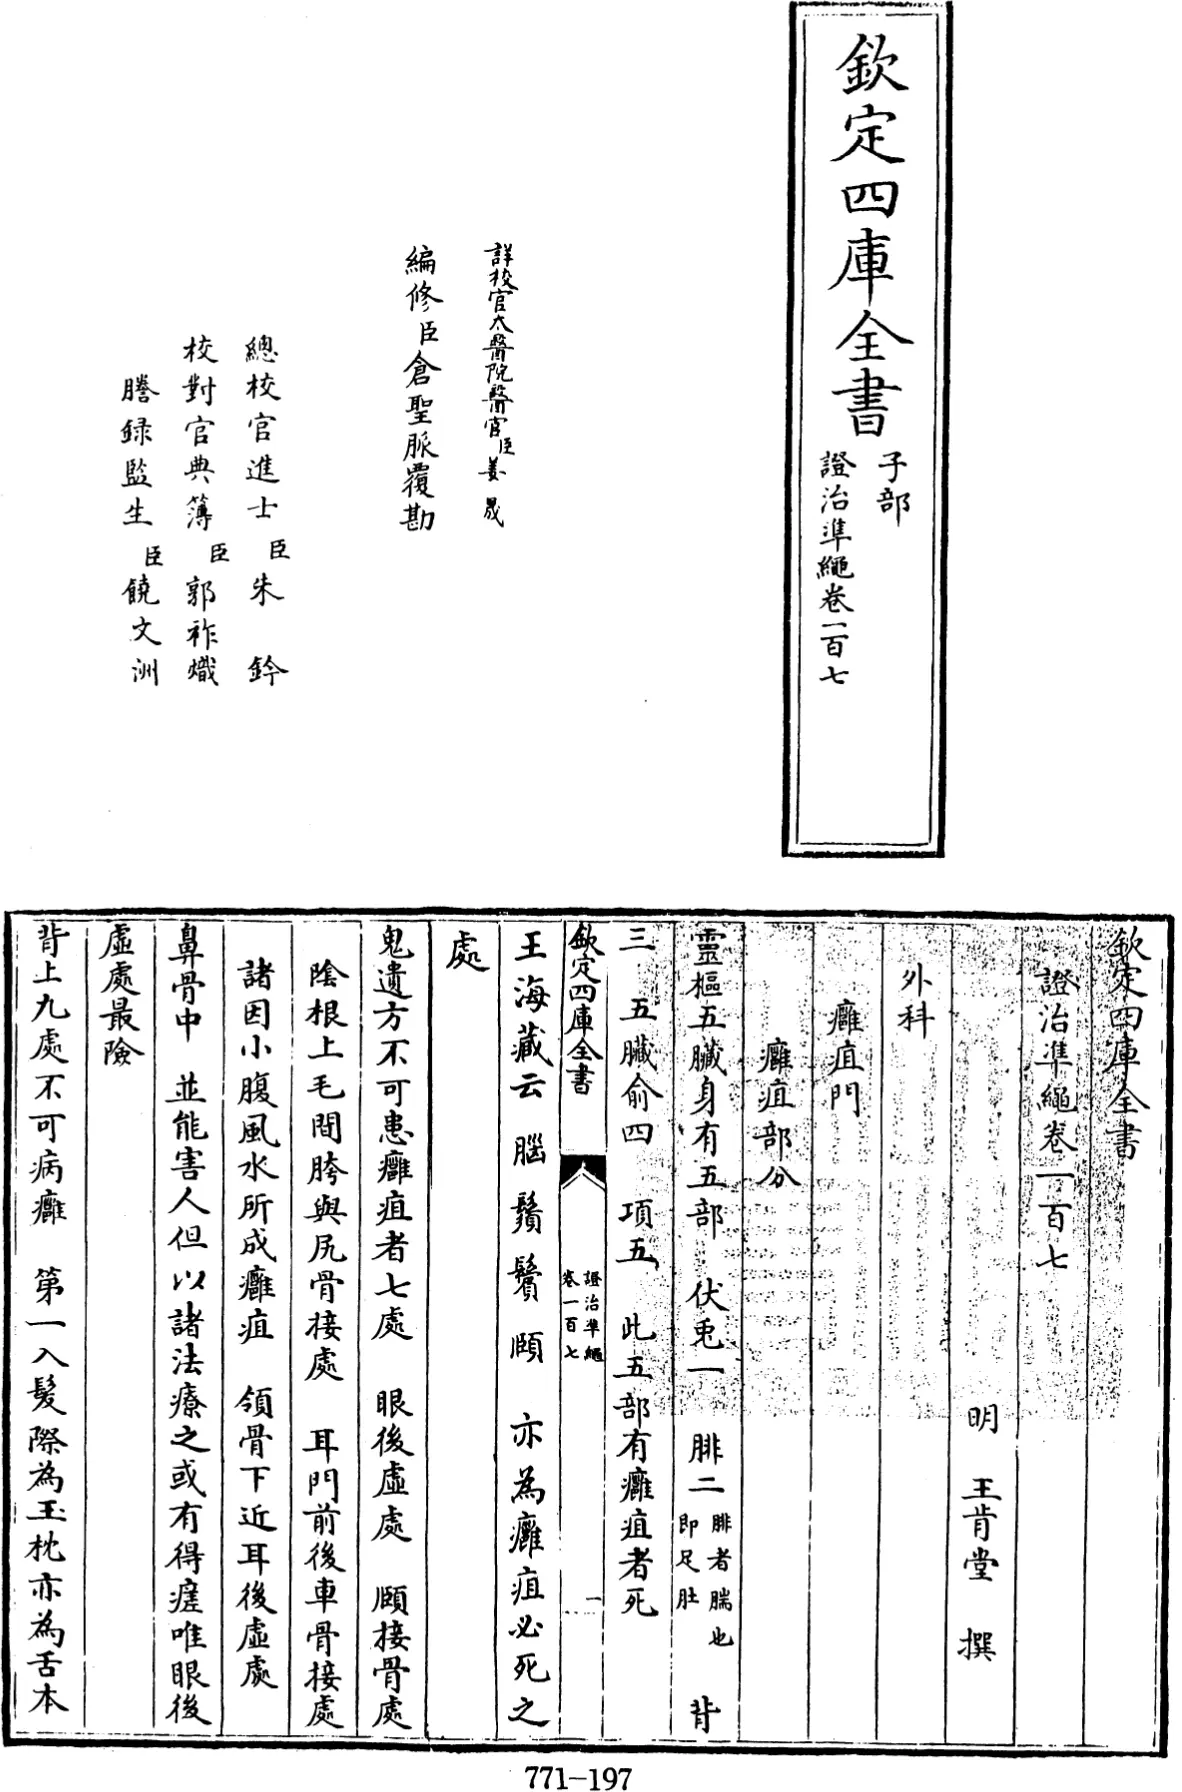 欽定四庫全書
子部
證治準繩卷一百七
詳校官太醫院醫官臣姜晟
編修臣倉聖脈覆勘
總校官進士臣朱鈐
校對官典簿臣郭祚熾
謄錄監生臣饒文洲
欽定四庫全書
證治準繩卷一百七
明 王肯堂 撰
外科
癰疽門
癰疽部分
靈樞五臟身有五部 伏兎一 腓二腓者腨也即足肚 背
三 五臟俞四 項五 此五部有癰疽者死
欽定四庫全書
證治準繩
卷一百七
一
王海藏云 腦 鬚 鬢 頤 亦為癰疽必死之
處
鬼遺方不可患癰疽者七處 眼後虛處 頤接骨處
陰根上毛間胯與尻骨接處 耳門前後車骨接處
諸因小腹風水所成癰疽 領骨下近耳後虛處
鼻骨中 並能害人但以諸法療之或有得瘥唯眼後
虛處最險
背上九處不可病癰 第一入髮際為玉枕亦為舌本
771-197